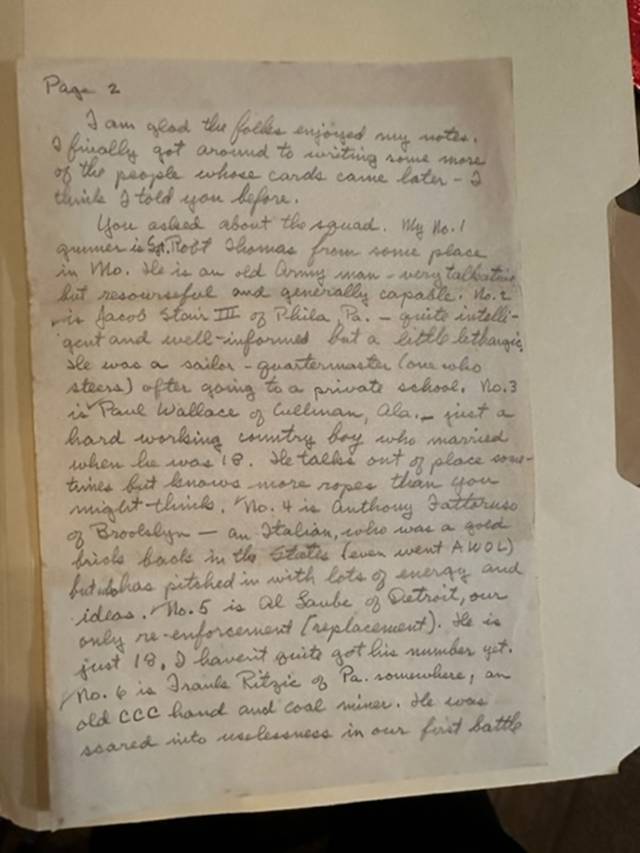 Page 2
I am glad the folks enjoyed my notes.
I finally got around to writing some more
of the people whose cards came later - I
think I told you before.
You asked about the squad. My No. 1
gunner is Sgt. Robt Thomas from some place
in Mo. He is an old Army man - very talkative
but resourseful and generally capable. No. 2
is Jacob Stair III of Phila, Pa. - quite intelli-
gent and well-informed but a little lethargic.
He was a sailor - quartermaster (one who
steers) after going to a private school. No. 3
is Paul Wallace of Cullman, Ala. - just a
hard working country boy who married
when he was 18. He talks out of place some-
times but knows more ropes than you
might think. No. 4 is Anthony Fattoruso
of Brooklyn - an Italian, who was a gold
brick back in the States (even went AWOL)
but has pitched in with lots of energy and
ideas. No. 5 is Al Laube of Detroit, our
only re-enforcement [replacement). He is
just 18. I haven't quite got his number yet.
No. 6 is Frank Ritzic of Pa. somewhere, an
old CCC hand and coal miner. He was
scared into uselessness in our first battle